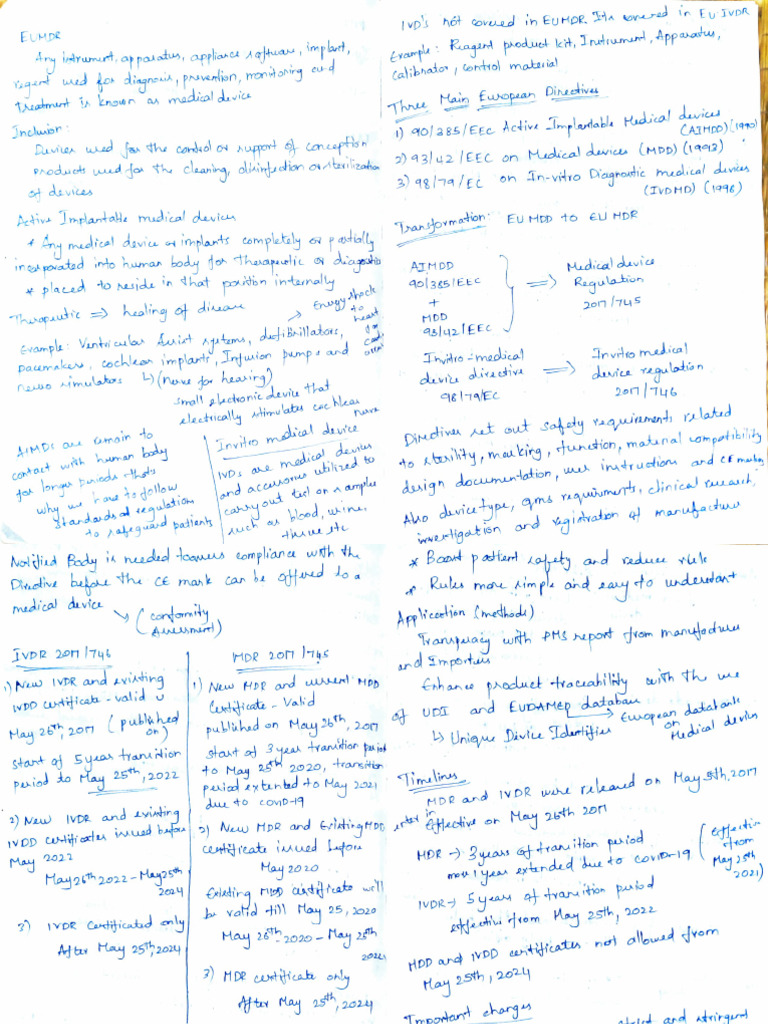 EUMDR
Any intrument, apparatus, appliance software, implant,
regent used for diagnosis, prevention, monitoring and
treatment is known as medical device
Inclusion:
Devices used for the control or support of conception
products used for the cleaning, disinfection or sterilization
of devices
Active Implantable medical devices
* Any medical device or implants completely or partially
incorporated into human body for therapeutic or diagnosis
* placed to reside in that position internally
Therapeutic ⇒ healing of disease
Energy shock
to
heart
for
Example: Ventricular assist systems, defibrillators,
pacemakers, cochlear implants, Infusion pumps and
neuro simulators ↳ (nerve for hearing)
small electronic device that
electrically stimulates cochlear
nerve
AIMDs are remain to
contact with human body
for longer periods thats
why we have to follow
standards at regulation
to safeguard patients
Invitro medical device
IVDs are medical devices
and accessories utilized to
carry out test on samples
such as blood, urine,
tissue etc
IVD's not covered in EUMDR. Its covered in EU IVDR
Example: Reagent product kit, Instrument, Apparatus,
calibrator, control material
Three Main European Directives
1) 90/385/EEC Active Implantable Medical devices
(AIMDD) (1990)
2) 93/42/EEC on Medical devices (MDD) (1993)
3) 98/79/EC on In-vitro Diagnostic medical devices
(IVDMD) (1996)
Transformation: EU MDD to EU MDR
AIMDD
90/385/EEC
+
MDD
93/42/EEC
⇒ Medical device
Regulation
2017/745
Invitro-medical
device directive
98/79/EC
⇒ Invitro medical
device regulation
2017/746
Directives set out safety requirements related
to sterility, marking, function, material compatibility
design documentation, user instructions and CE marking
Also device type, qms requirments, clinical research,
investigation and registration of manufacture
Notified Body is needed to assess compliance with the
Directive before the CE mark can be offered to a
medical device
↘ (conformity
Assessment)
IVDR 2017/746
1) New IVDR and existing
IVDD certificate - valid
May 26th, 2017 (published
on)
start of 5 year transition
period to May 25th, 2022
2) New IVDR and existing
IVDD certificates issued before
May 2022
May 26th 2022 - May 25th
2024
3) IVDR Certificated only
After May 25th, 2024
MDR 2017/745
1) New MDR and current MDD
Certificate - Valid
published on May 26th, 2017
start of 3 year transition period
to May 25th 2020, transition
period extended to May 2021
due to covid-19
2) New MDR and Existing MDD
certificate issued before
May 2020
Existing MDD certificate will
be valid till May 25, 2020
May 26th - 2020 - May 25th
3) MDR certificate only
After May 25th, 2024
* Boost patient safety and reduce risk
* Rules more simple and easy to understant
Application (methods)
Transperacy with PMS report from manufactures
and Importers
Enhance product traceability with the use
of UDI and EUDAMED database
→ European databank
on
Medical devices
↳ Unique Device Identifies
Timelines
MDR and IVDR were released on May 5th, 2017
enter in
Effective on May 26th 2017
MDR → 3 years of transition period
more 1 year extended due to covid-19 (Effective
from
May 25th
2021)
IVDR → 5 years of transition period
effective from May 25th, 2022
MDD and IVDD certificates not allowed from
May 25th, 2024
Important changes
and stringent